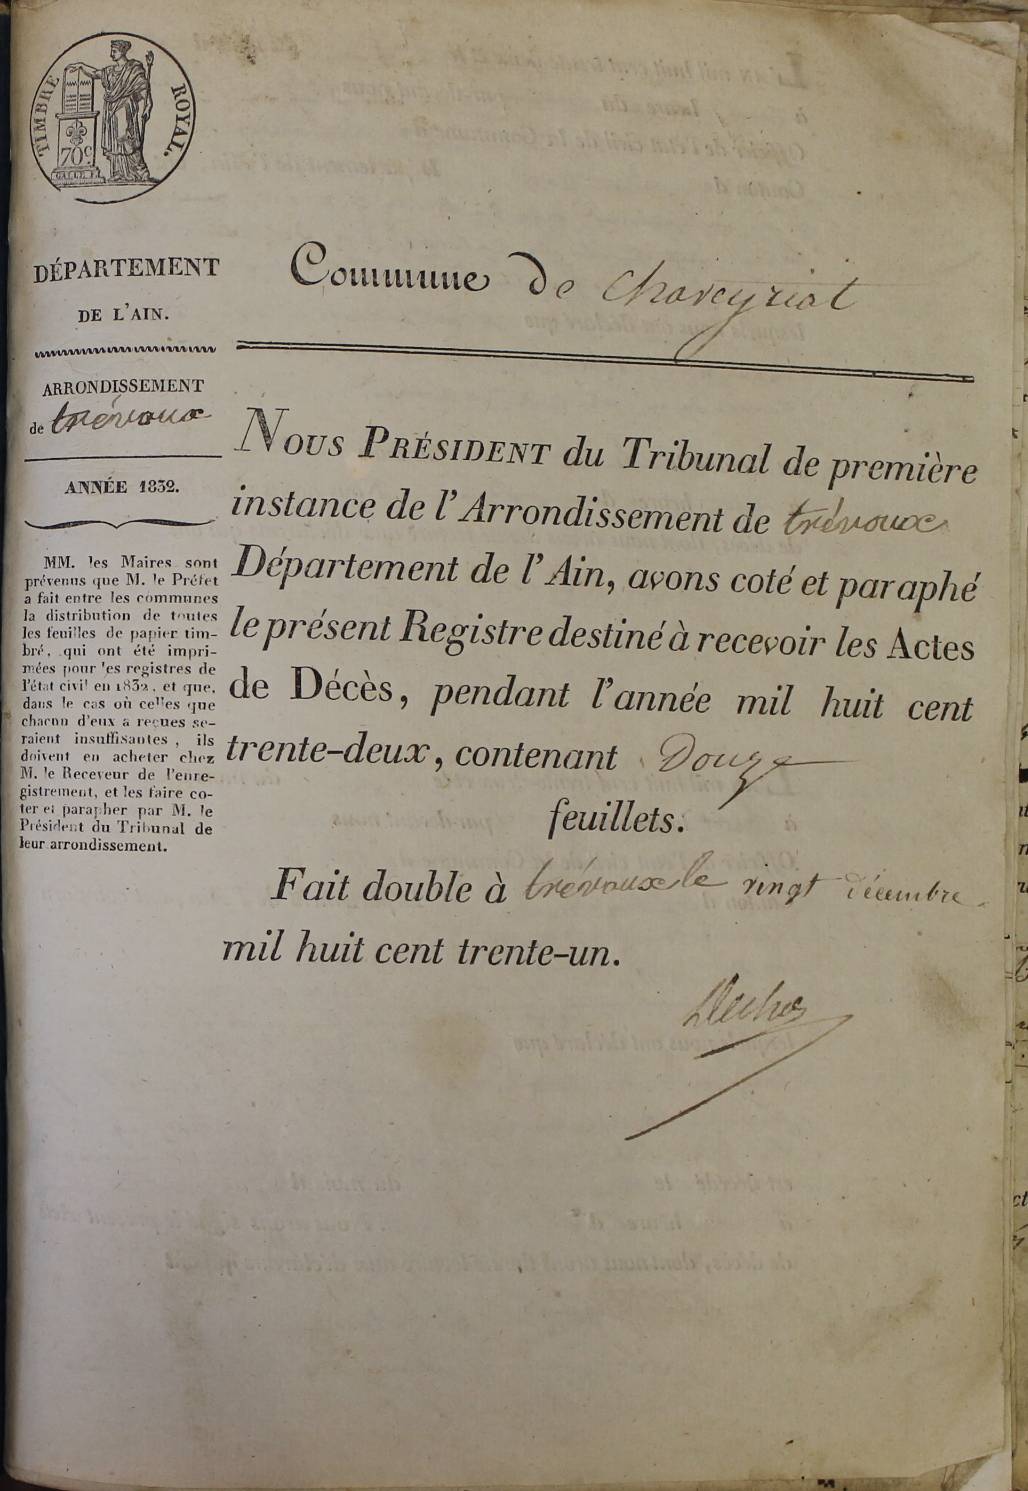 TIMBRE ROYAL.
70 C
DÉPARTEMENT
DE L'AIN.
ARRONDISSEMENT
de trévoux
ANNÉE 1832.
MM. les Maires sont
prévenus que M. le Préfet
a fait entre les communes
la distribution de toutes
les feuilles de papier tim-
bré, qui ont été impri-
mées pour les registres de
l'état civil en 1832, et que,
dans le cas où celles que
chacun d'eux a reçues se-
raient insuffisantes, ils
doivent en acheter chez
M. le Receveur de l'enre-
gistrement, et les faire co-
ter et parapher par M. le
Président du Tribunal de
leur arrondissement.
Commune De Chaveyriat
NOUS PRÉSIDENT du Tribunal de première
instance de l'Arrondissement de trévoux
Département de l'Ain, avons coté et paraphé
le présent Registre destiné à recevoir les Actes
de Décès, pendant l'année mil huit cent
trente-deux, contenant Douze
feuillets.
Fait double à trévoux le vingt décembre
mil huit cent trente-un.